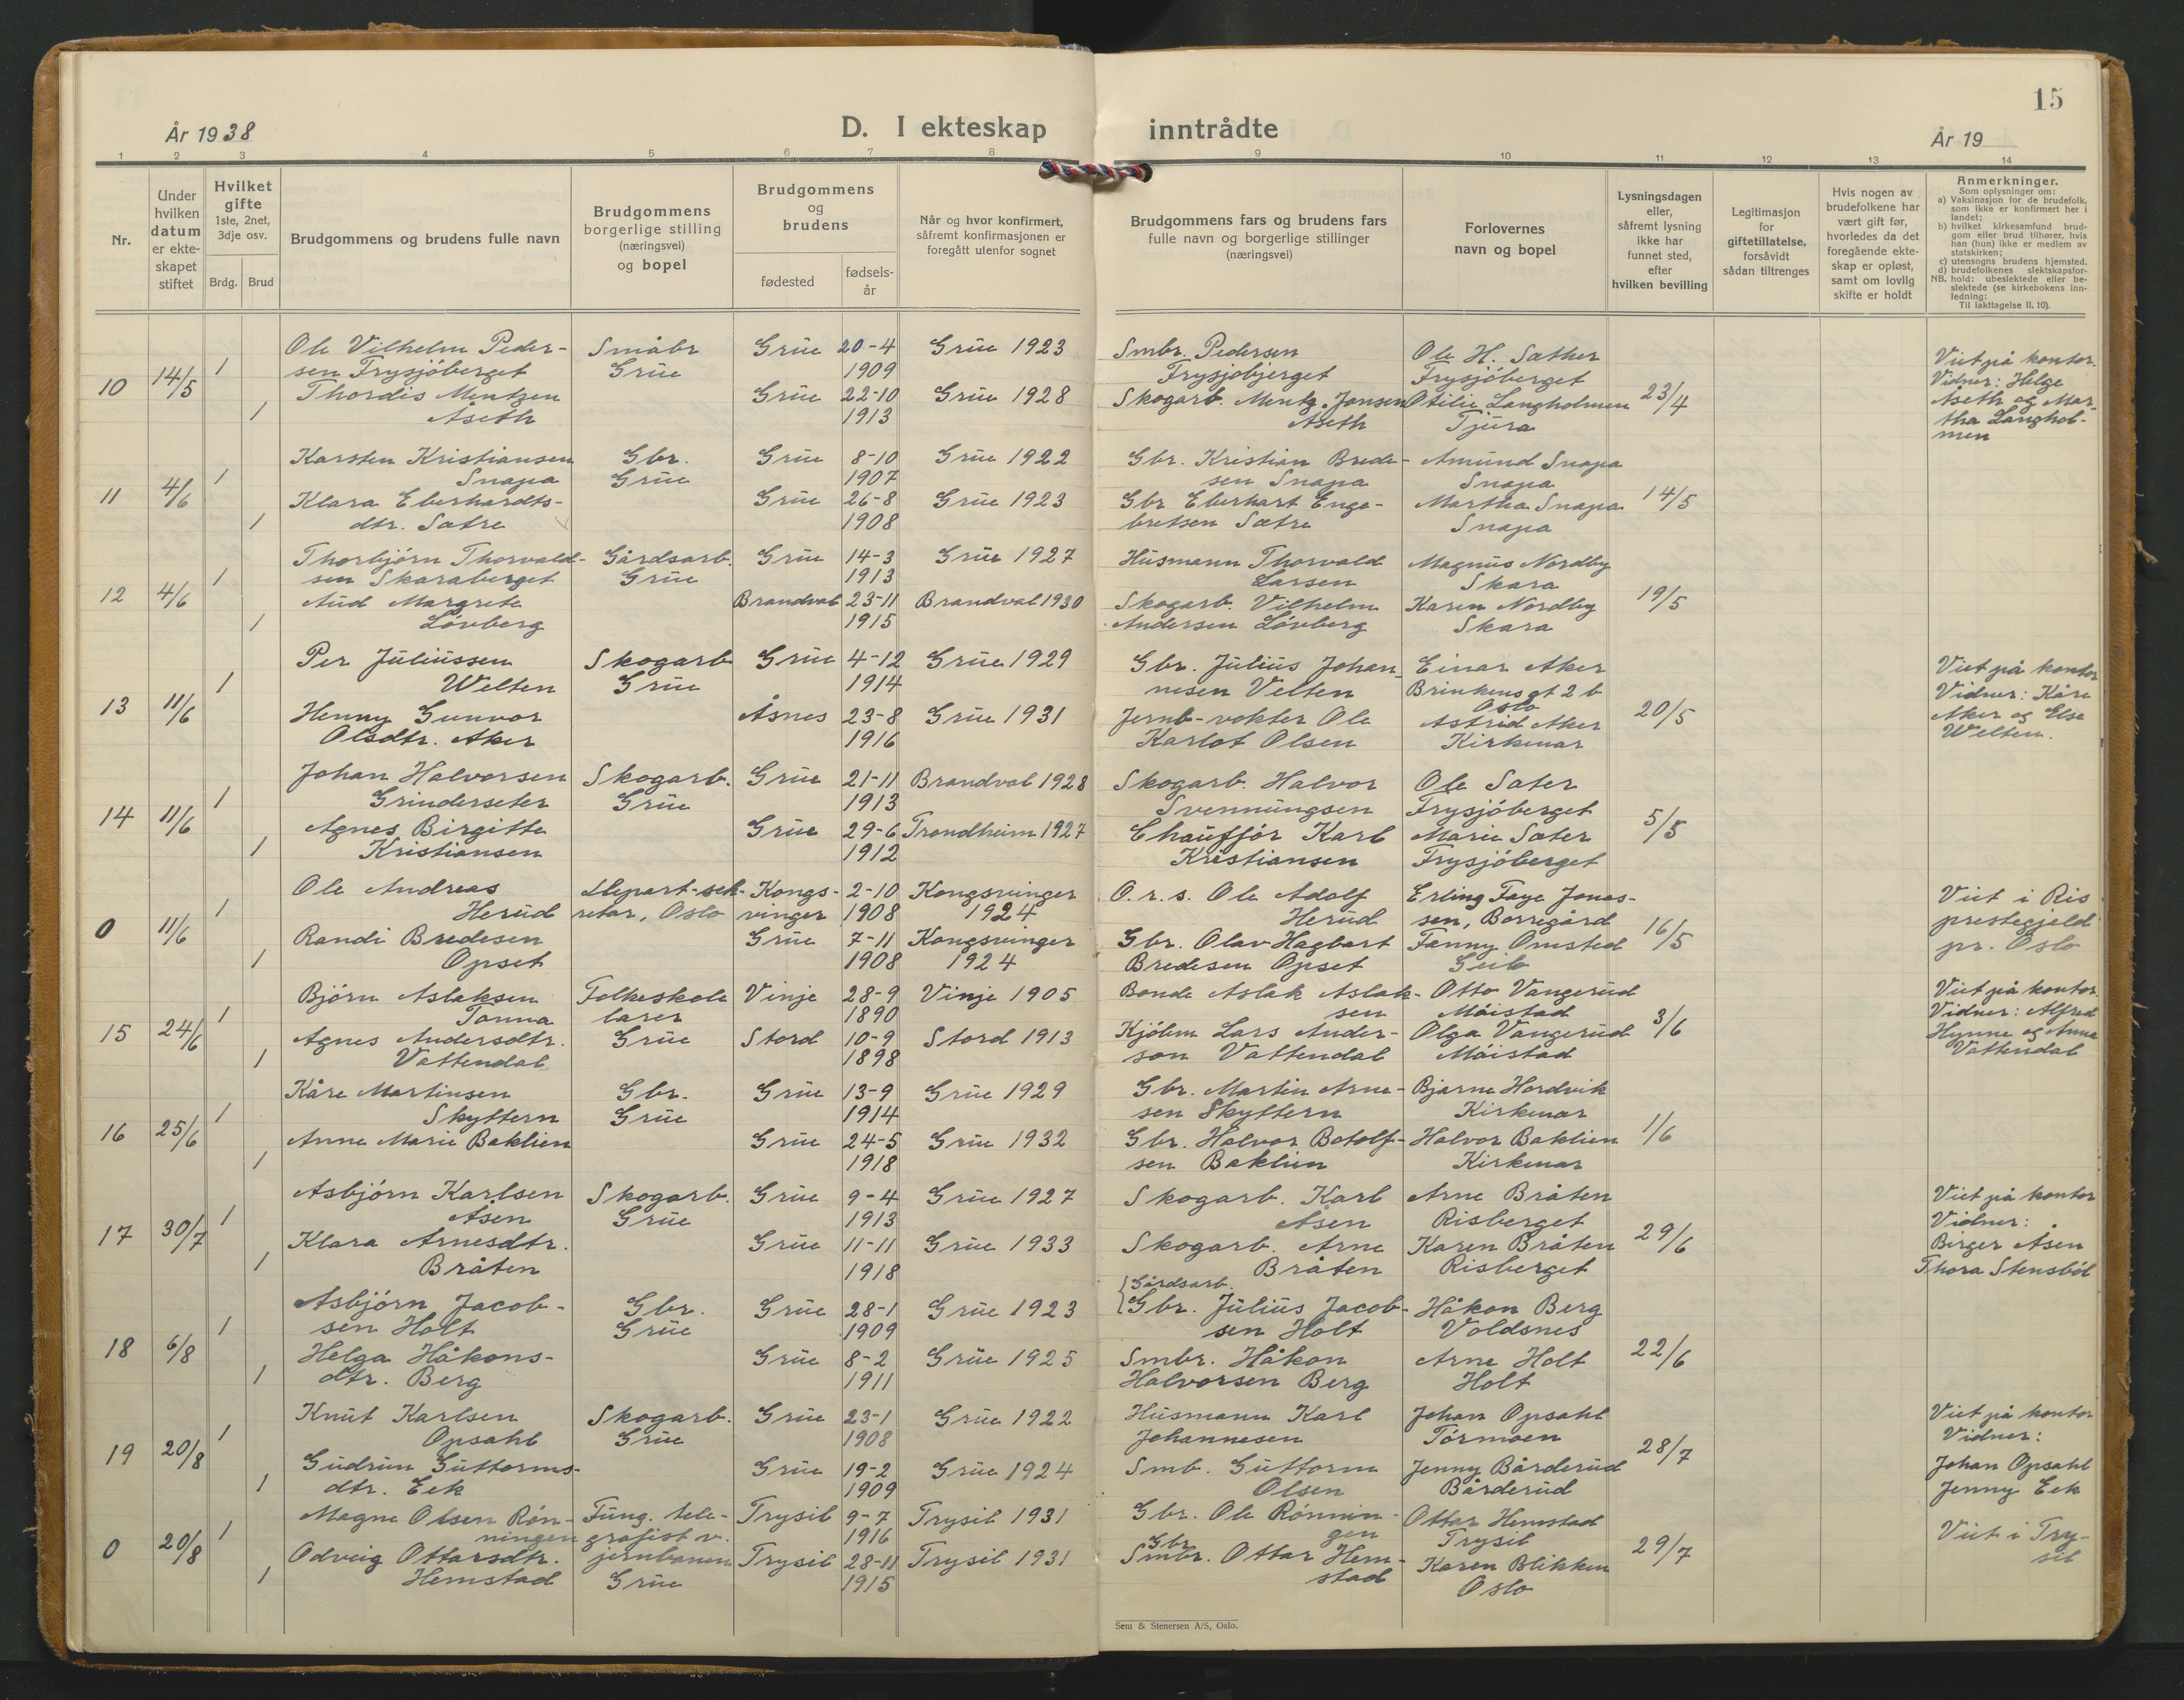 15
År 1938
D. I ekteskap inntrådte
År 19
1 2 3 4 5 6 7 8 9 10 11 12 13 14
Nr.
Under hvilken datum er ekte- skapet stiftet
Hvilket gifte 1ste, 2net, 3dje osv.
Brdg. Brud
Brudgommens og brudens fulle navn
Brudgommens borgerlige stilling (næringsvei) og bopel
Brudgommens og brudens
fødested
fødsels- år
Når og hvor konfirmert, såfremt konfirmasjonen er foregått utenfor sognet
Brudgommens fars og brudens fars fulle navn og borgerlige stillinger (næringsvei)
Forlovernes navn og bopel
Lysningsdagen eller, såfremt lysning ikke har funnet sted, efter hvilken bevilling
Legitimasjon for giftetillatelse, forsåvidt sådan tiltrenges
Hvis nogen av brudefolkene har vært gift før, hvorledes da det foregående ekte- skap er opløst, samt om lovlig skifte er holdt
Anmerkninger.
Som oplysninger om:
a) Vaksinasjon for de brudefolk, som ikke er konfirmert her i landet;
b) hvilket kirkesamfund brud- gom eller brud tilhører, hvis han (hun) ikke er medlem av statskirken;
c) utensogns brudens hjemsted.
d) brudefolkenes slektskapsfor-
NB. hold: ubeslektede eller be- slektede (se kirkebokens inn- ledning:
Til iakttagelse II. 10).
10 14/5 1 Ole Vilhelm Peder- Småbr Grue 20-4 Grue 1923 Smbr. Pedersen Ole H. Sæther 23/4 Viet på kontor.
sen Frysjöberget Grue 1909 Frysjöbjerget Frysjöberget Vidner: Helge
1 Thordis Mentzen Grue 22-10 Grue 1928 Skogarb. Mentz Jonsen Otilie Langholmen Åseth og Mar-
Åseth 1913 Åseth Tjura tha Langhol-
men
11 4/6 1 Karsten Kristiansen Gbr. Grue 8-10 Grue 1922 Gbr. Kristian Brede- Amund Snapa 14/5
Snapa Grue 1907 sen Snapa Snapa
1 Klara Eberhardts- Grue 26-8 Grue 1923 Gbr Eberhart Enge- Martha Snapa
dtr. Sætre 1908 bretsen Sætre Snapa
12 4/6 1 Thorbjörn Thorvald- Gårdsarb. Grue 14-3 Grue 1927 Husmann Thorvald Magnus Nordby 19/5
sen Skaraberget Grue 1913 Larsen Skara
1 Aud Margrete Brandval 23-11 Brandval 1930 Skogarb. Vilhelm Karen Nordby
Lövberg 1915 Andersen Lövberg Skara
13 11/6 1 Per Juliussen Skogarb Grue 4-12 Grue 1929 Gbr. Julius Johan- Einar Aker 20/5 Viet på kontor
Welten Grue 1914 nesen Velten Brinkens gt 2 b Vidner: Kåre
Oslo
Henny Gunvor Åsnes 23-8 Grue 1931 Jernb-vokter Ole Astrid Aker Aker og Else
Olsdtr. Aker 1916 Karlot Olsen Kirkenær Welten.
14 11/6 1 Johan Halvorsen Skogarb. Grue 21-11 Brandval 1928 Skogarb. Halvor Ole Sæter 5/5
Grinderseter Grue 1913 Svennungsen Frysjöberget
1 Agnes Birgitte Grue 29-6 Trondheim 1927 Chaufför Karl Marie Sæter
Kristiansen 1912 Kristiansen Frysjöberget
0 11/6 1 Ole Andreas Depart-sek- Kongs- 2-10 Kongsvinger O.r.s. Ole Adolf Erling Faye Jonas- 16/5 Viet i Ris
Herud retær, Oslo vinger 1908 1924 Herud sen, Borregård prestegjeld
1 Randi Bredesen Grue 7-11 Kongsvinger Gbr. Olav Hagbart Fanny Omsted pr. Oslo
Opset 1908 1924 Bredesen Opset
15 24/6 1 Björn Aslaksen Folkeskole Vinje 28-9 Vinje 1905 Bonde Aslak Aslak- Otto Vangerud 3/6 Viet på kontor
Tonna lærer 1890 sen Möistad Vidner: Alfred
1 Agnes Andersdtr. Grue Stord 10-9 Stord 1913 Kjöbm Lars Ander- Olga Vangerud Hynne og Anna
Vattendal 1898 son Vattendal Möistad Vattendal
16 25/6 1 Kåre Martinsen Gbr. Grue 13-9 Grue 1929 Gbr. Martin Arne- Bjarne Hordvik 1/6
Skyttern Grue 1914 sen Skyttern Kirkenær
1 Anne Marie Baklien Grue 24-5 Grue 1932 Gbr. Halvor Botolf- Halvor Baklien
1918 sen Baklien Kirkenær
17 30/7 1 Asbjörn Karlsen Skogarb. Grue 9-4 Grue 1927 Skogarb. Karl Arne Bråten 29/6 Viet på kontor
Åsen Grue 1913 Åsen Risberget Vidner:
1 Klara Arnesdtr. Grue 11-11 Grue 1933 Skogarb. Arne Karen Bråten Birger Åsen
Bråten 1918 Bråten Risberget Thora Stensböl
Gårdsarb.
18 6/8 1 Asbjörn Jacob- Gbr. Grue 28-1 Grue 1923 Gbr. Julius Jacob- Håkon Berg 22/6
sen Holt Grue 1909 sen Holt Voldsnes
1 Helga Håkons- Grue 8-2 Grue 1925 Smbr. Håkon Arne Holt
dtr. Berg 1911 Halvorsen Berg Holt
19 20/8 1 Knut Karlsen Skogarb. Grue 23-1 Grue 1922 Husmann Karl Johan Opsahl 28/7 Viet på kontor
Opsahl Grue 1908 Johannesen Törmoen Vidner:
1 Gudrun Guttorms- Grue 19-2 Grue 1924 Smb. Guttorm Jenny Bårderud Johan Opsahl
dtr. Eek 1909 Olsen Bårderud Jenny Eek
0 20/8 1 Magne Olsen Rön- Fung. tele- Trysil 9-7 Trysil 1931 Gbr. Ole Rönnin- Ottar Hemstad 29/7 Viet i Try-
ningen grafist v. 1916 gen Trysil sil
Gbr.
1 Odveig Ottarsdtr. jernbanen Trysil 28-11 Trysil 1931 Smbr. Ottar Hem- Karen Blikken
Hemstad Grue 1915 stad Oslo
Sem & Stenersen A/S, Oslo.